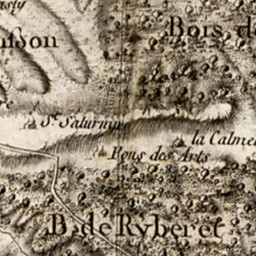 Bois de
St Saturnin
la Calme
Fons des Arts
B. de Ryberet